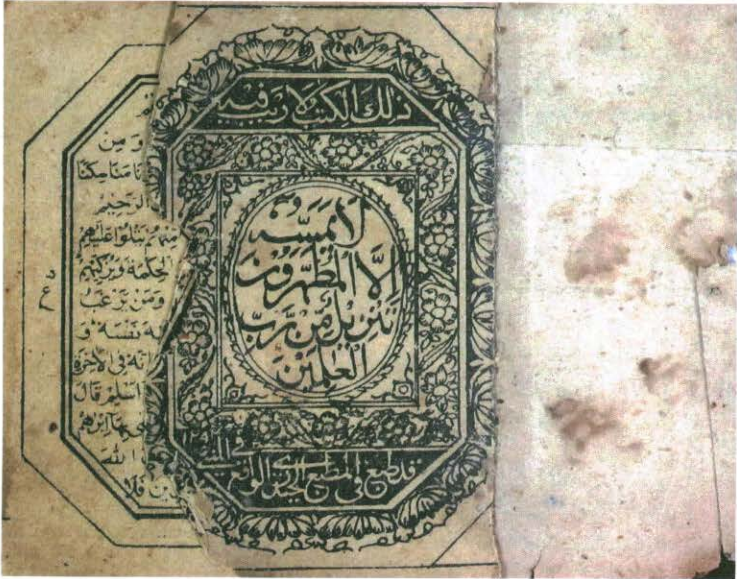 ذلك الكتب لا ريب فيه
لَا يَمَسُّهٗ
اِلَّا الْمُطَهَّرُوْنَ
تَنْزِيْلٌ مِّنْ رَّبِّ
الْعٰلَمِيْنَ
قد طبع في المطبع
وَ مِنْ
نَا مَنَاسِكَنَا
الرَّحِيْمُ
مِنْهُمْ يَتْلُوْا عَلَيْهِمْ
الْحِكْمَةَ وَيُزَكِّيْهِمْ
وَمَنْ يَّرْغَبُ
نَفْسَهٗ وَ
اِنَّهٗ فِى الْاٰخِرَةِ
اَسْلِمْ قَالَ
بِهَا اِبْرٰهٖمُ
اللّٰهَ
فَلَا
ع